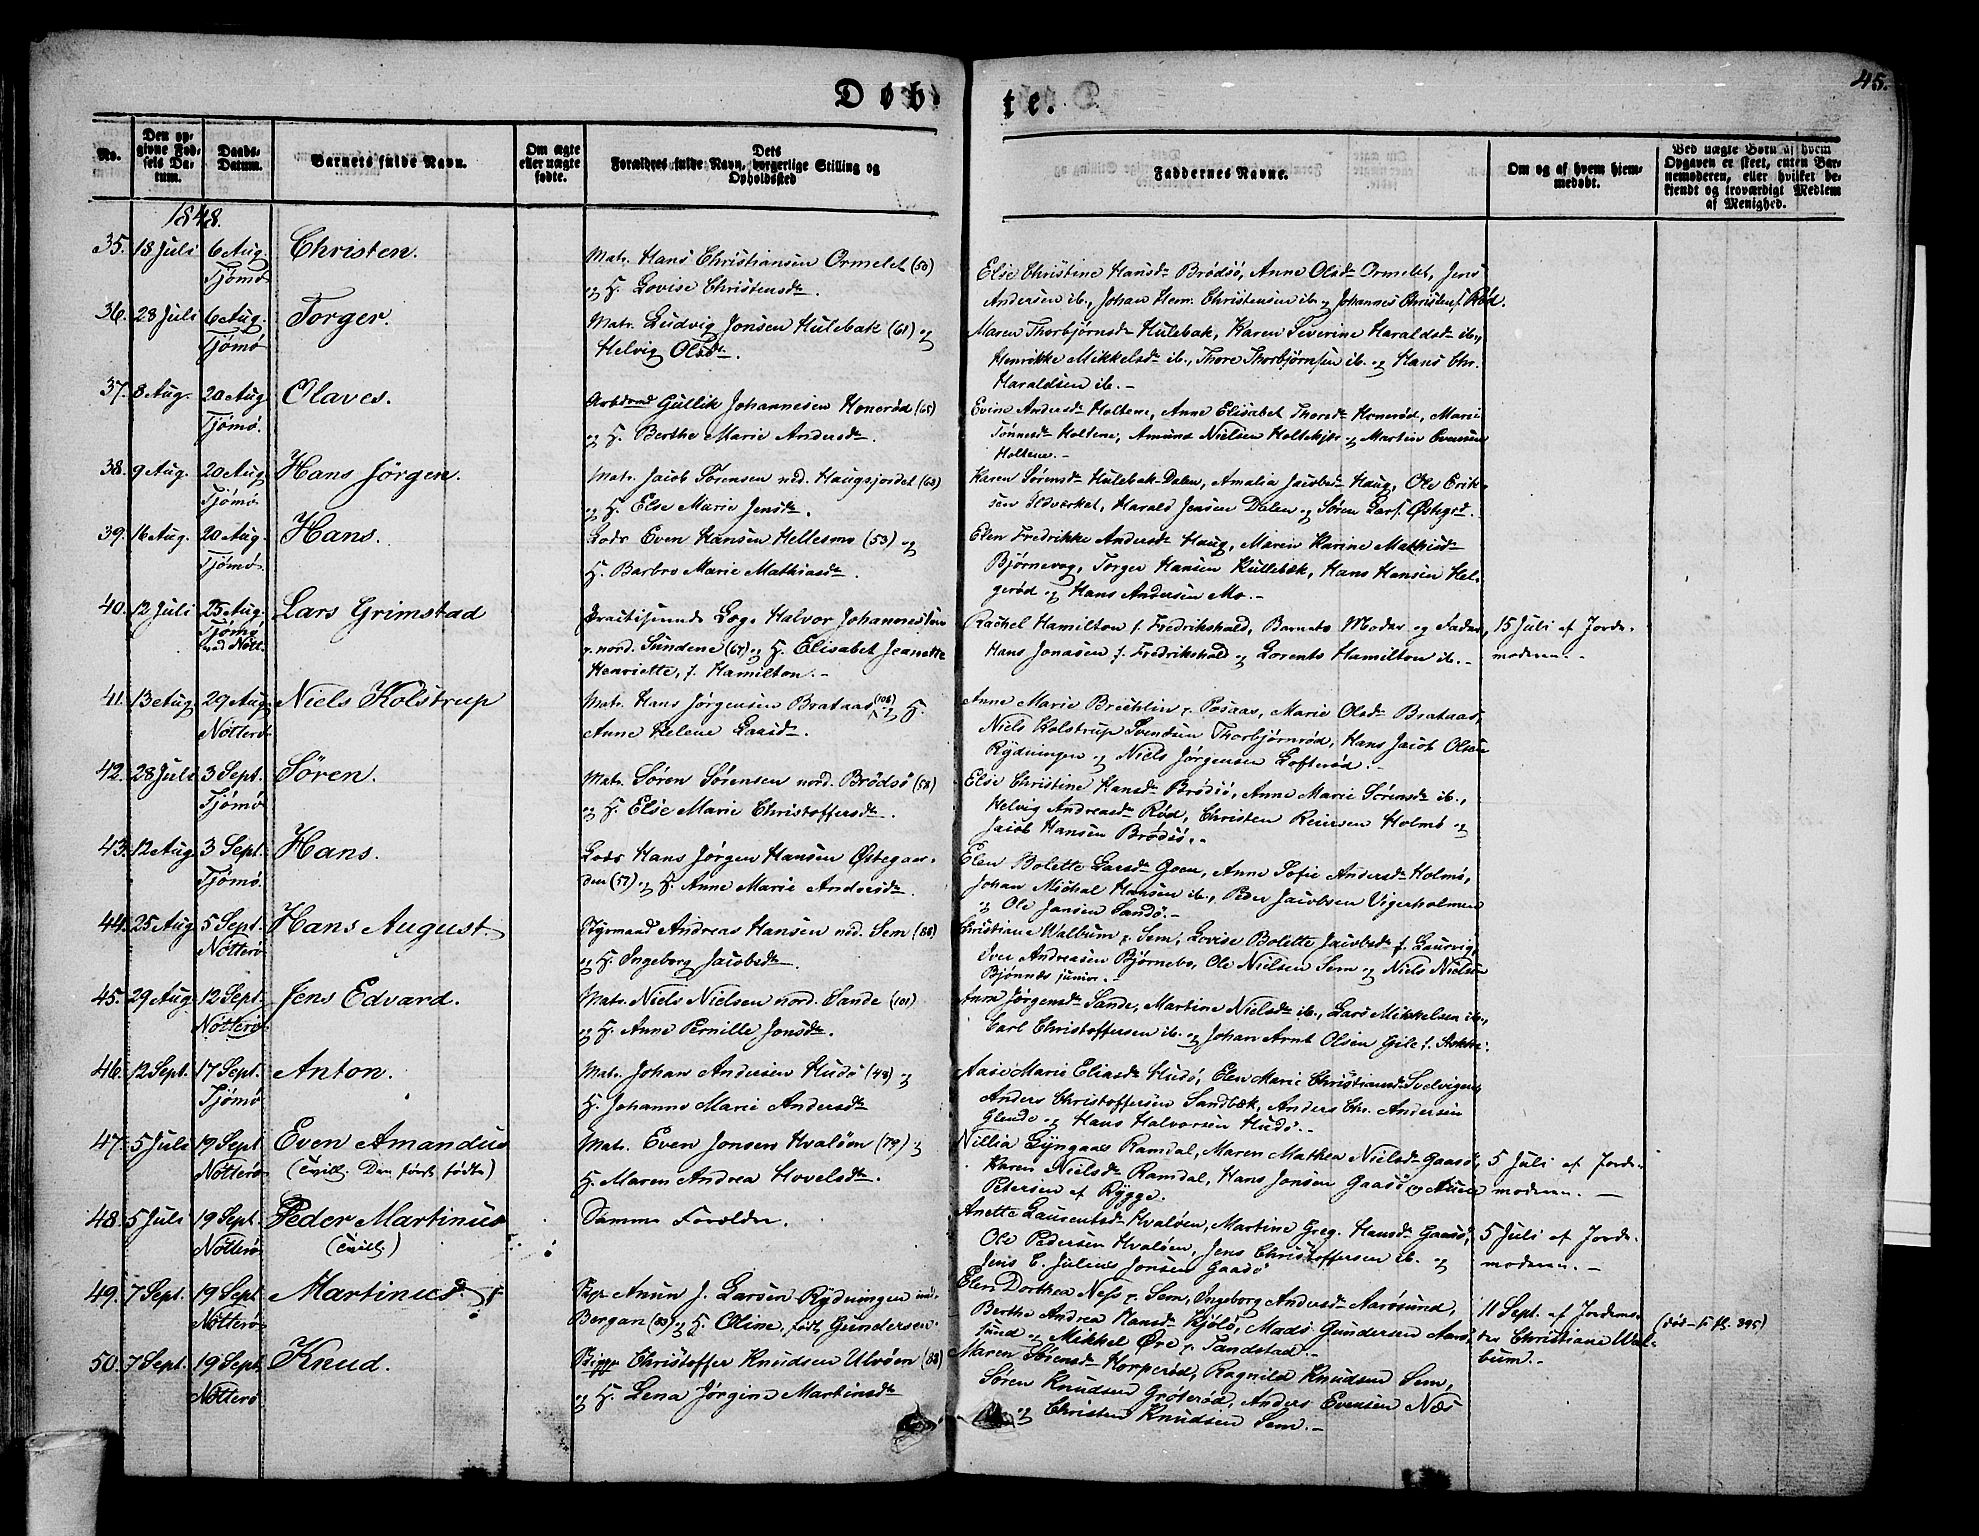 Døb-
te.
45.
No.
Den op-
givne Fød-
sels Da-
tum.
Daabs-
Datum.
Barnets fulde Navn.
Om ægte
eller uægte
fødte.
Dets
Forældres fulde Navn, borgerlige Stilling og
Opholdssted
Faddernes Navne.
Om og af hvem hjem-
medøbt.
Ved uægte Børn af hvem
Opgaven er skeet, enten Bar-
nemoderen, eller hvilket be-
kjendt og troværdigt Medlem
af Menighed.
1848.
35. 18 Juli 6 Aug. Tjømø
Christen.
Matr. Hans Christiansen Ormelet (50)
og H. Lovise Christensdtr.
Else Christine Hansdtr Brødsø, Anne Olsdtr Ormelet, Jens
Andersen ib., Johan Herm. Christensen ib. og Johannes Christens. Rød.
36. 28 Juli 6 Aug. Tjømø
Torger.
Matr. Ludvig Jonsen Hulebak (61) og
Helvig Olsdtr.
Maren Thorbjørnsdtr Hulebak, Karen Severine Haraldsdtr ib.,
Henrikke Mikkelsdtr ib., Thore Thorbjørnsen ib. og Hans Chr.
Haraldsen ib. -
37. 8 Aug. 20 Aug Tjømø.
Olaves.
Arbdsmd Gullik Johannesen Honerød (65)
og H. Berthe Marie Andersdtr.
Evine Andersdtr Holtene, Anne Elisabet Thorsdtr Honerød, Marie
Tønnesdtr Holtene, Amund Nielsen Holtekjær og Martin Evensen
Holtene. -
38. 9 Aug. 20 Aug Tjømø
Hans Jörgen.
Matr. Jacob Sørensen ned. Haugsjordet (63)
og H. Else Marie Jensdtr.
Karen Sørensdtr Hulebak-Dalen, Amalia Jacobsdtr Haug, Ole Erik-
sen Ildverket, Harald Jensen Dalen og Søren Lars. Østegrd.
39. 16 Aug. 20 Aug. Tjømø
Hans.
Lods Even Hansen Hellesmo (53) og
H. Barbro Marie Mathiasdtr.
Elen Fredrikke Andersdtr Haug, Maren Karine Mathiasdtr
Bjørnevog, Torger Hansen Kullebæk, Hans Hansen Hel-
gerød og Hans Andersen Mo. -
40. 12 Juli 25 Aug. Tjømø
Lars Grimstad
Practiserende Læge Halvor Johannessen
p. nord. Sundene (64) og H. Elisabet Jeanette
Henriette, f. Hamilton. -
Rachel Hamilton f. Fredrikshald, Barnets Moder og Fader,
Hans Jonasen f. Fredrikshald og Lorents Hamilton ib. -
15 Juli af Jorde-
moderen. -
41. 13 Aug 29 Aug. Nötterö
Niels Kolstrup
Matr. Hans Jørgensen Brataas (108) og H.
Anne Helene Larsdtr.
Anne Marie Brechlin p. Posaas, Marie Olsdtr Brataas,
Niels Kolstrup Svendsen Thorbjørnrød, Hans Jacob Olsen
Rydningen og Niels Jørgensen Lofterød. -
42. 28 Juli 3 Sept. Tjømø
Sören.
Matr. Sören Sørensen nord. Brødsø (58)
og H. Else Marie Christoffersdtr.
Else Christine Hansdtr Brødsø, Anne Marie Sørensdtr ib.,
Helvig Andreasdtr Rød, Christen Reiersen Holmø og
Jacob Hansen Brødsø. -
43. 12 Aug 3 Sept. Tjømø.
Hans.
Lods Hans Jørgen Hansen Østegar-
den (57) og H. Anne Marie Andersdtr.
Elen Bolette Larsdtr Goen, Anne Sofie Andersdtr Holmø,
Johan Michal Hansen ib., Peder Jacobsen Vigerholmen
og Ole Jansen Sandø. -
44. 25 Aug 5 Sept. Nötterö
Hans August.
Styrmand Andreas Hansen ned. Sem (88)
og H. Ingeborg Jacobsdtr.
Christiane Walbum p. Sem, Lovise Bolette Jacobsdtr f. Laurvig,
Iver Andreasen Bjørnebo, Ole Nielsen Sem og Niels Nielsen
Bjønnes junior. -
45. 29 Aug. 12 Sept. Nötterö
Jens Edvard.
Matr. Niels Nielsen nord. Sande (101)
og H. Anne Pernille Jonsdtr.
Anne Jørgensdtr Sande, Martine Nielsdtr ib., Lars Mikkelsen ib.,
Carl Christoffersen ib. og Johan Arnt Olsen Gile f. Stokke.
46. 12 Sept. 17 Sept. Tjømø
Anton.
Matr. Johan Andersen Hudø (48) og
H. Johanne Marie Andersdtr
Aase Marie Eliasdtr Hudø, Elen Marie Christiansdtr Svelvigen,
Anders Christoffersen Sandbæk, Anders Chr. Andersen
Glende og Hans Halvorsen Hudø. -
47. 5 Juli 19 Sept. Nötterö
Even Amandus
(Tvill. Den først fødte)
Matr. Even Jonsen Hvaløen (79) og
H. Maren Andrea Hovelsdtr.
Nillia Gyngaas Ramdal, Maren Mathea Nielsdtr Gaasø,
Karen Nielsdtr Ramdal, Hans Jonsen Gaasø og
Petersen af Rygge.
5 Juli af Jorde-
moderen. -
48. 5 Juli 19 Sept. Nötterö
Peder Martinus
(Tvill.)
Samme Forældre.
Anette Laurentsdtr Hvaløen, Martine Greg. Hansdtr Gaasø,
Ole Pedersen Hvaløen, Jens Christoffersen ib. og
Jens E. Julius Jonsen Gaasø
5 Juli af Jorde-
moderen. -
49. 7 Sept. 19 Sept. Nötterö
Martinus
Amun J. Larsen Rydningen
Bergan (89) og H. Oline, født Gundersen.
Elen Dorthea Ness p. Sem, Ingeborg Andersdtr Aarøsund,
Berthe Andrea Hansdtr KjøLø, Mads Gundersen Aarø-
sund og Mikkel Øre p. Tandstad. -
11 Sept. af Jordemo-
der Christiane Wal-
bum. -
(død - 15 fl. 395)
50. 7 Sept. 19 Sept. Nötterö
Knud.
Christoffer Knudsen Ulvøen (83)
og H. Lena Jørgine Martinsdtr
Maren Steensdtr Horperød, Ragnild Knudsen Sem,
Søren Knudsen Grøterød, Anders Evensen Næs
og Christen Knudsen Sem. -